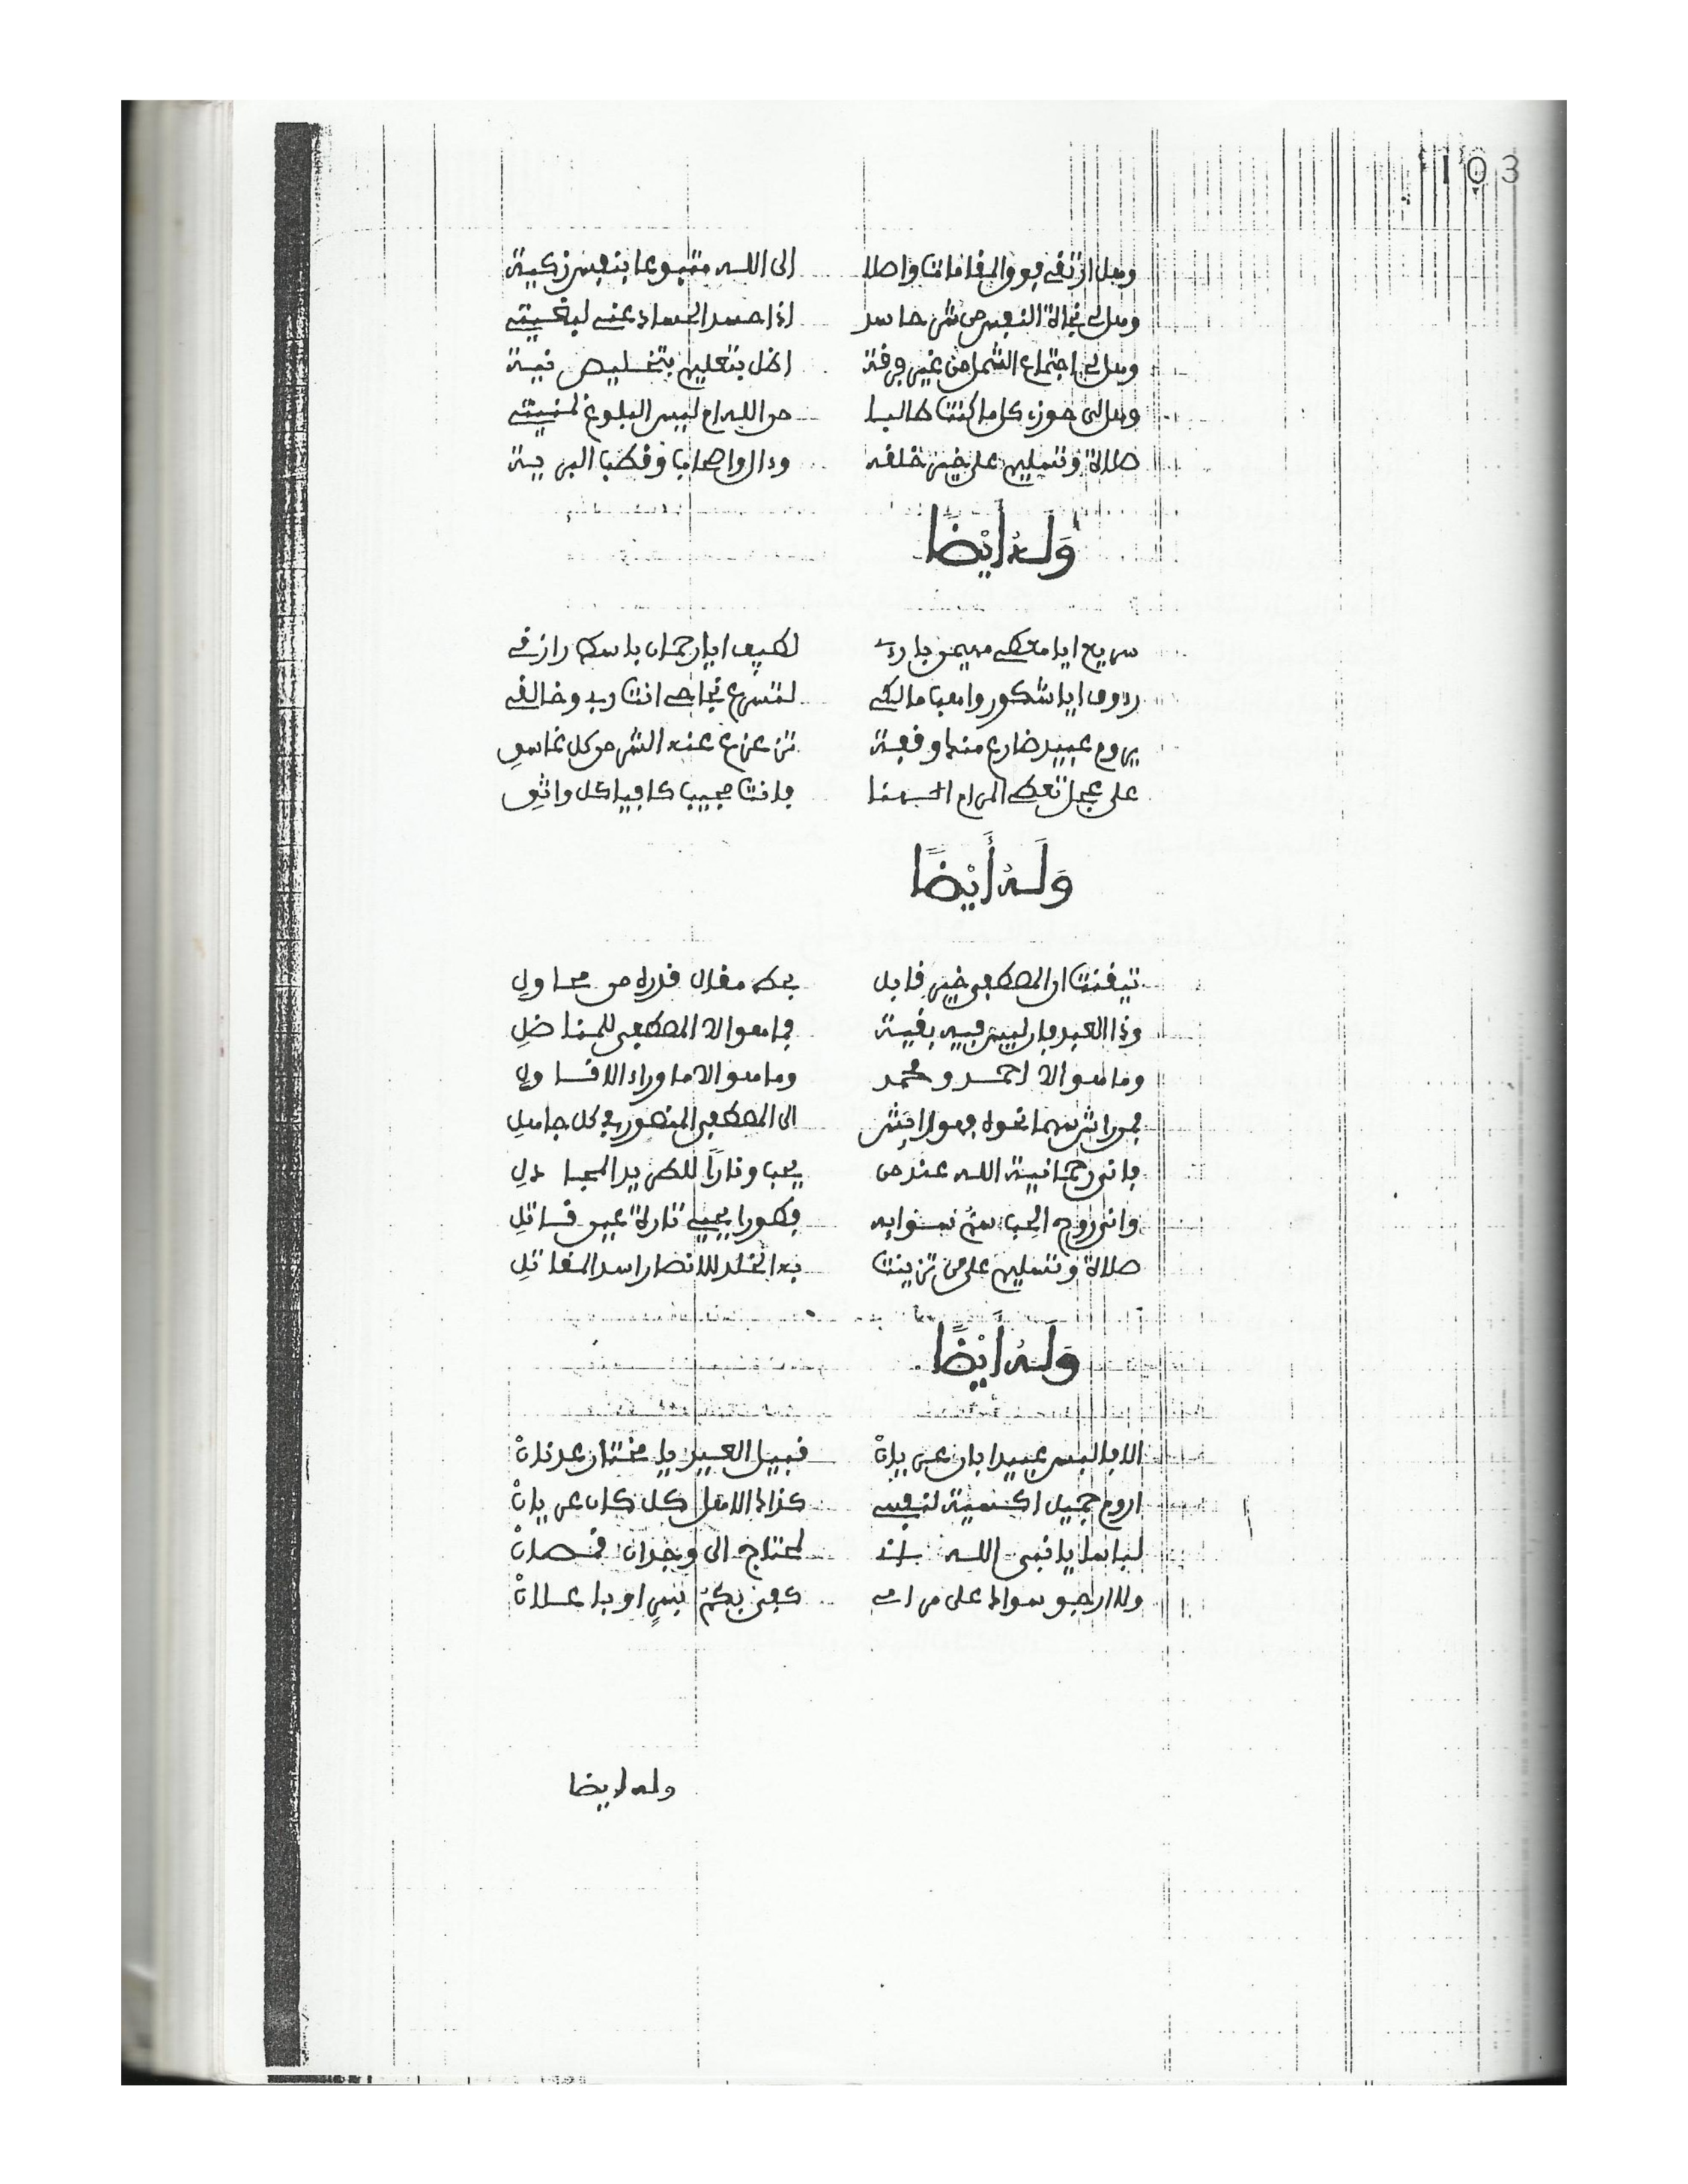 103
وهل ارتقي فوق المقامات واصلا الى الله متبوعا بنفس زكية
وهل لي نجاة النفس من شر حاسد اذا حسد الحساد عني لبغيتي
وهل لي اجتماع الشمل من غير فرقة اظل بتعليم بتخليص نية
وهل لي حوز كل ما كنت طالبا من الله ام ليس البلوغ لمنيتي
صلاة وتسليم على خير خلقه وءال واصحاب وقطب البرية
وَلَهُ أَيْضًا
سريع ايا معطي مهيمن بارئ لطيف ايا رحمان باسط رازقي
رءوف ايا شكور واهب مالكي لتسرع نجاحي انت رب وخالقي
يروم عبيد ضارع منك وقفة تزعزع عنه الشر من كل غاسق
على عجل تعطي المرام الهنا فانت مجيب كافيا كل واثق
وَلَهُ أَيْضًا
تيقنت ان المصطفى خير قابل يحط مقال قدره من محاول
وذا العبد فان ليس فيه بقية فما هو الا المصطفى للمناضل
وما هو الا احمد ومحمد وما هو الا ما وراء الاقاول
فمن راش سهما نحوه فهو رائش الى المصطفى المنصور في كل جاهل
فاني رحمانية الله عند من يحب ونارا للطريد المجادل
واني روح الحب سم سوابه فطورا يحيي تارة عين قاتل
صلاة وتسليم على من تزينت به الخلد للانصار اسد المقاتل
وَلَهُ أَيْضًا
الا فالبس عبيدا بان عن بان قبيل العبيد يا مختار عدنان
اروم جميل اكسية لنفسي كذاك الاهل كل كان عن بان
لباها يا نبي الله لمحتاج الى وجدان قمصان
ولا ارجو سواك على مرامي كفى بكم بسر او باعلان
وله ايضا